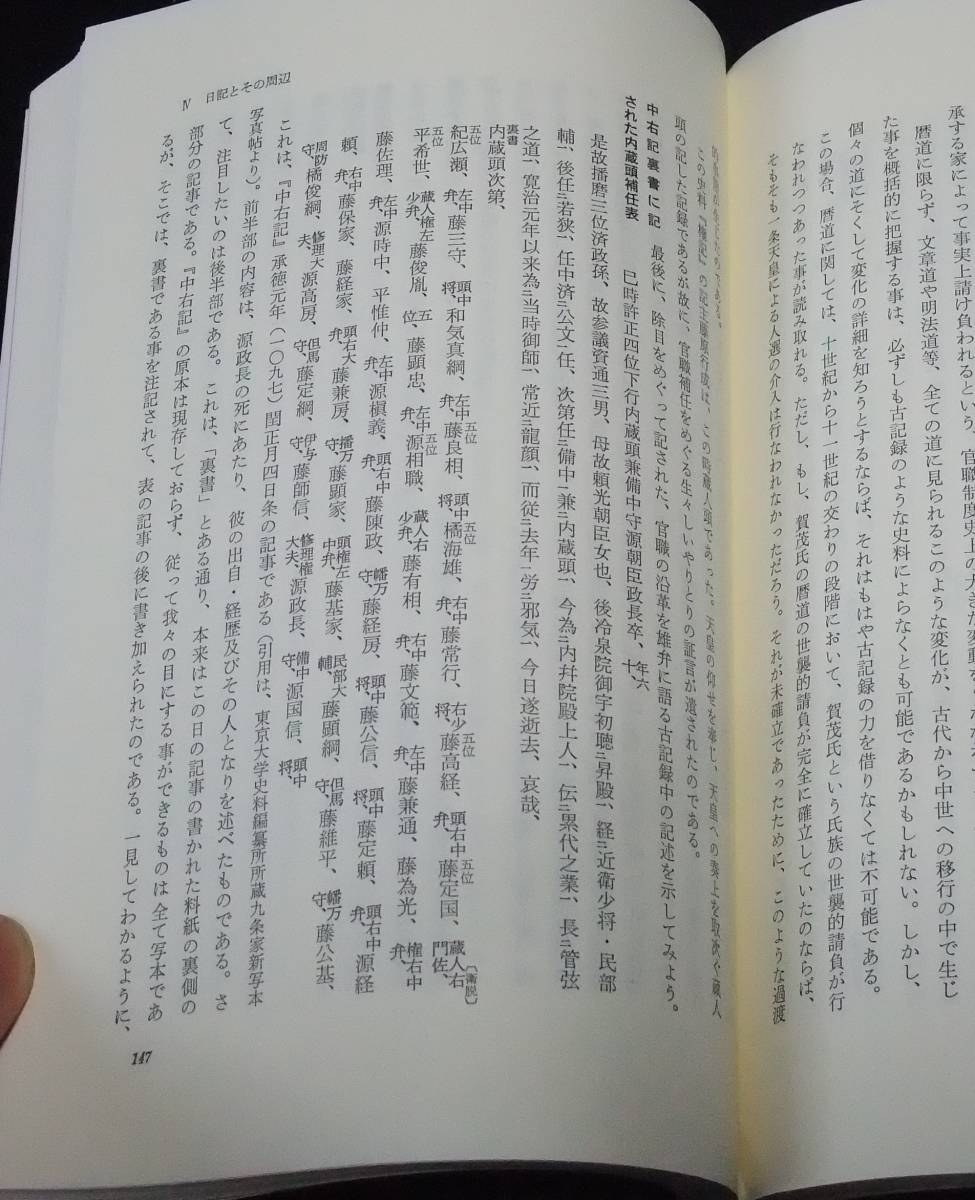 承する家によって事実上請け負われるという、官職制度史上の大きな変動
暦道に限らず、文章道や明法道等、全ての道に見られるこのような変化が、古代から中世への移行の中で生じ
た事を概括的に把握する事は、必ずしも古記録のような史料によらなくとも可能であるかもしれない。しかし、
個々の道にそくして変化の詳細を知ろうとするならば、それはもはや古記録の力を借りなくては不可能である。
この場合、暦道に関しては、十世紀から十一世紀の交わりの段階において、賀茂氏という氏族の世襲的請負が行
なわれつつあった事が読み取れる。ただし、もし、賀茂氏の暦道の世襲的請負が完全に確立していたのならば、
そもそも一条天皇による人選の介入は行なわれなかっただろう。それが未確立であったために、このような過渡
たのである。
この史料『権記』の記主藤原行成は、この時蔵人頭であった。天皇の仰せを奉じ、天皇への奏上を取次ぐ蔵人
頭の記した記録であるが故に、官職補任をめぐる生々しいやりとりの証言が遺されたのである。
中右記裏書に記
された内蔵頭補任表
最後に、除目をめぐって記された、官職の沿革を雄弁に語る古記録中の記述を示してみよう。
巳時許正四位下行内蔵頭兼備中守源朝臣政長卒、年六十、
是故播磨三位済政孫、故参議資通三男、母故頼光朝臣女也、後冷泉院御宇初聴二昇殿一、経二近衛少将・民部
輔一、後任二若狭一、任中済二公文一任、次第任二備中一兼二内蔵頭一、今為二内幷院殿上人一、伝二累代之業一、長二管弦
之道一、寛治元年以来為二当時御師一、常近二龍顔一、而従二去年一労二邪気一、今日遂逝去、哀哉、
裏書
内蔵頭次第、
紀広瀬、五位 藤三守、左中将、 和気真綱、頭中弁、 藤良相、五位左中将、 橘海雄、五位頭中弁、 藤常行、右中将、 藤高経、五位右少 藤定国、五位頭右中 蔵人右門佐、〔衛脱〕
平希世、五位 藤俊胤、蔵人権左少弁、 藤顕忠、五位、 源相職、五位左中弁、 藤有相、蔵人右少弁、 藤文範、右中弁、 藤兼通、左中 藤為光、権右中弁、
藤佐理、源時中、左中 平惟仲、源槇義、左中弁、 藤陳政、頭右中 藤経房、幡万守、 藤公信、頭中将、 藤定頼、頭中 源経
頼、藤保家、右中弁、 藤経家、藤兼房、頭右大弁、 藤顕家、播万守、 藤基家、頭権左中弁、 藤顕綱、民部大輔、 藤維平、但馬守、 藤公基、幡万守、
周防守、橘俊綱、修理大夫、源高房、但馬守、藤定綱、伊与守、藤師信、修理権大夫、源政長、備中守、源国信、頭中将、
これは、『中右記』承徳元年（一〇九七）閏正月四日条の記事である（引用は、東京大学史料編纂所所蔵九条家新写本
写真帖より）。前半部の内容は、源政長の死にあたり、彼の出自・経歴及びその人となりを述べたものである。さ
て、注目したいのは後半部である。これは、「裏書」とある通り、本来はこの日の記事の書かれた料紙の裏側の
部分の記事である。『中右記』の原本は現存しておらず、従って我々の目にする事ができるものは全て写本であ
るが、そこでは、裏書である事を注記されて、表の記事の後に書き加えられたのである。一見してわかるように、
Ⅳ 日記とその周辺
147